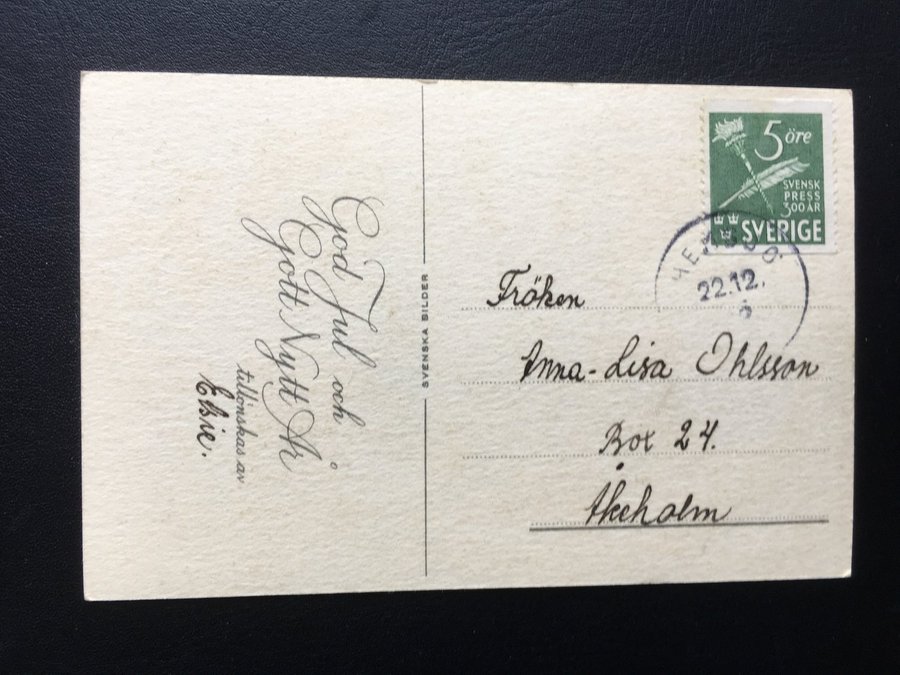 God Jul och
Gott Nytt År
tillönskas av
Elsie.
SVENSKA BILDER
5 öre
SVENSK
PRESS
300 ÅR
SVERIGE
22.12.
Fröken
Anna-Lisa Ohlsson
Box 24.
Åkeholm